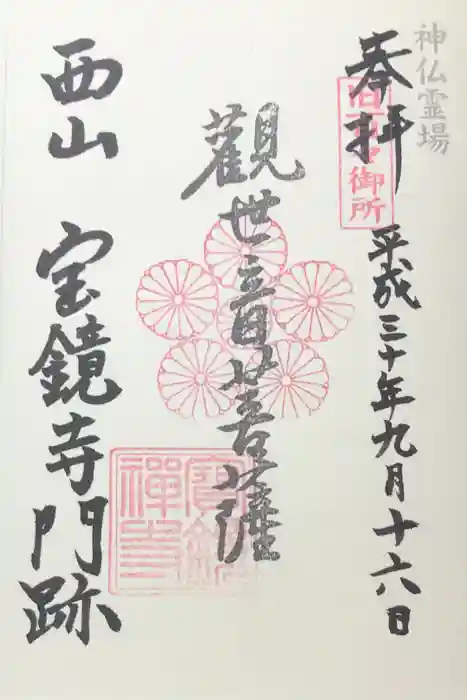 神仏霊場
奉拝 平成三十年九月十六日
御所
觀世音菩薩
西山 宝鏡寺門跡